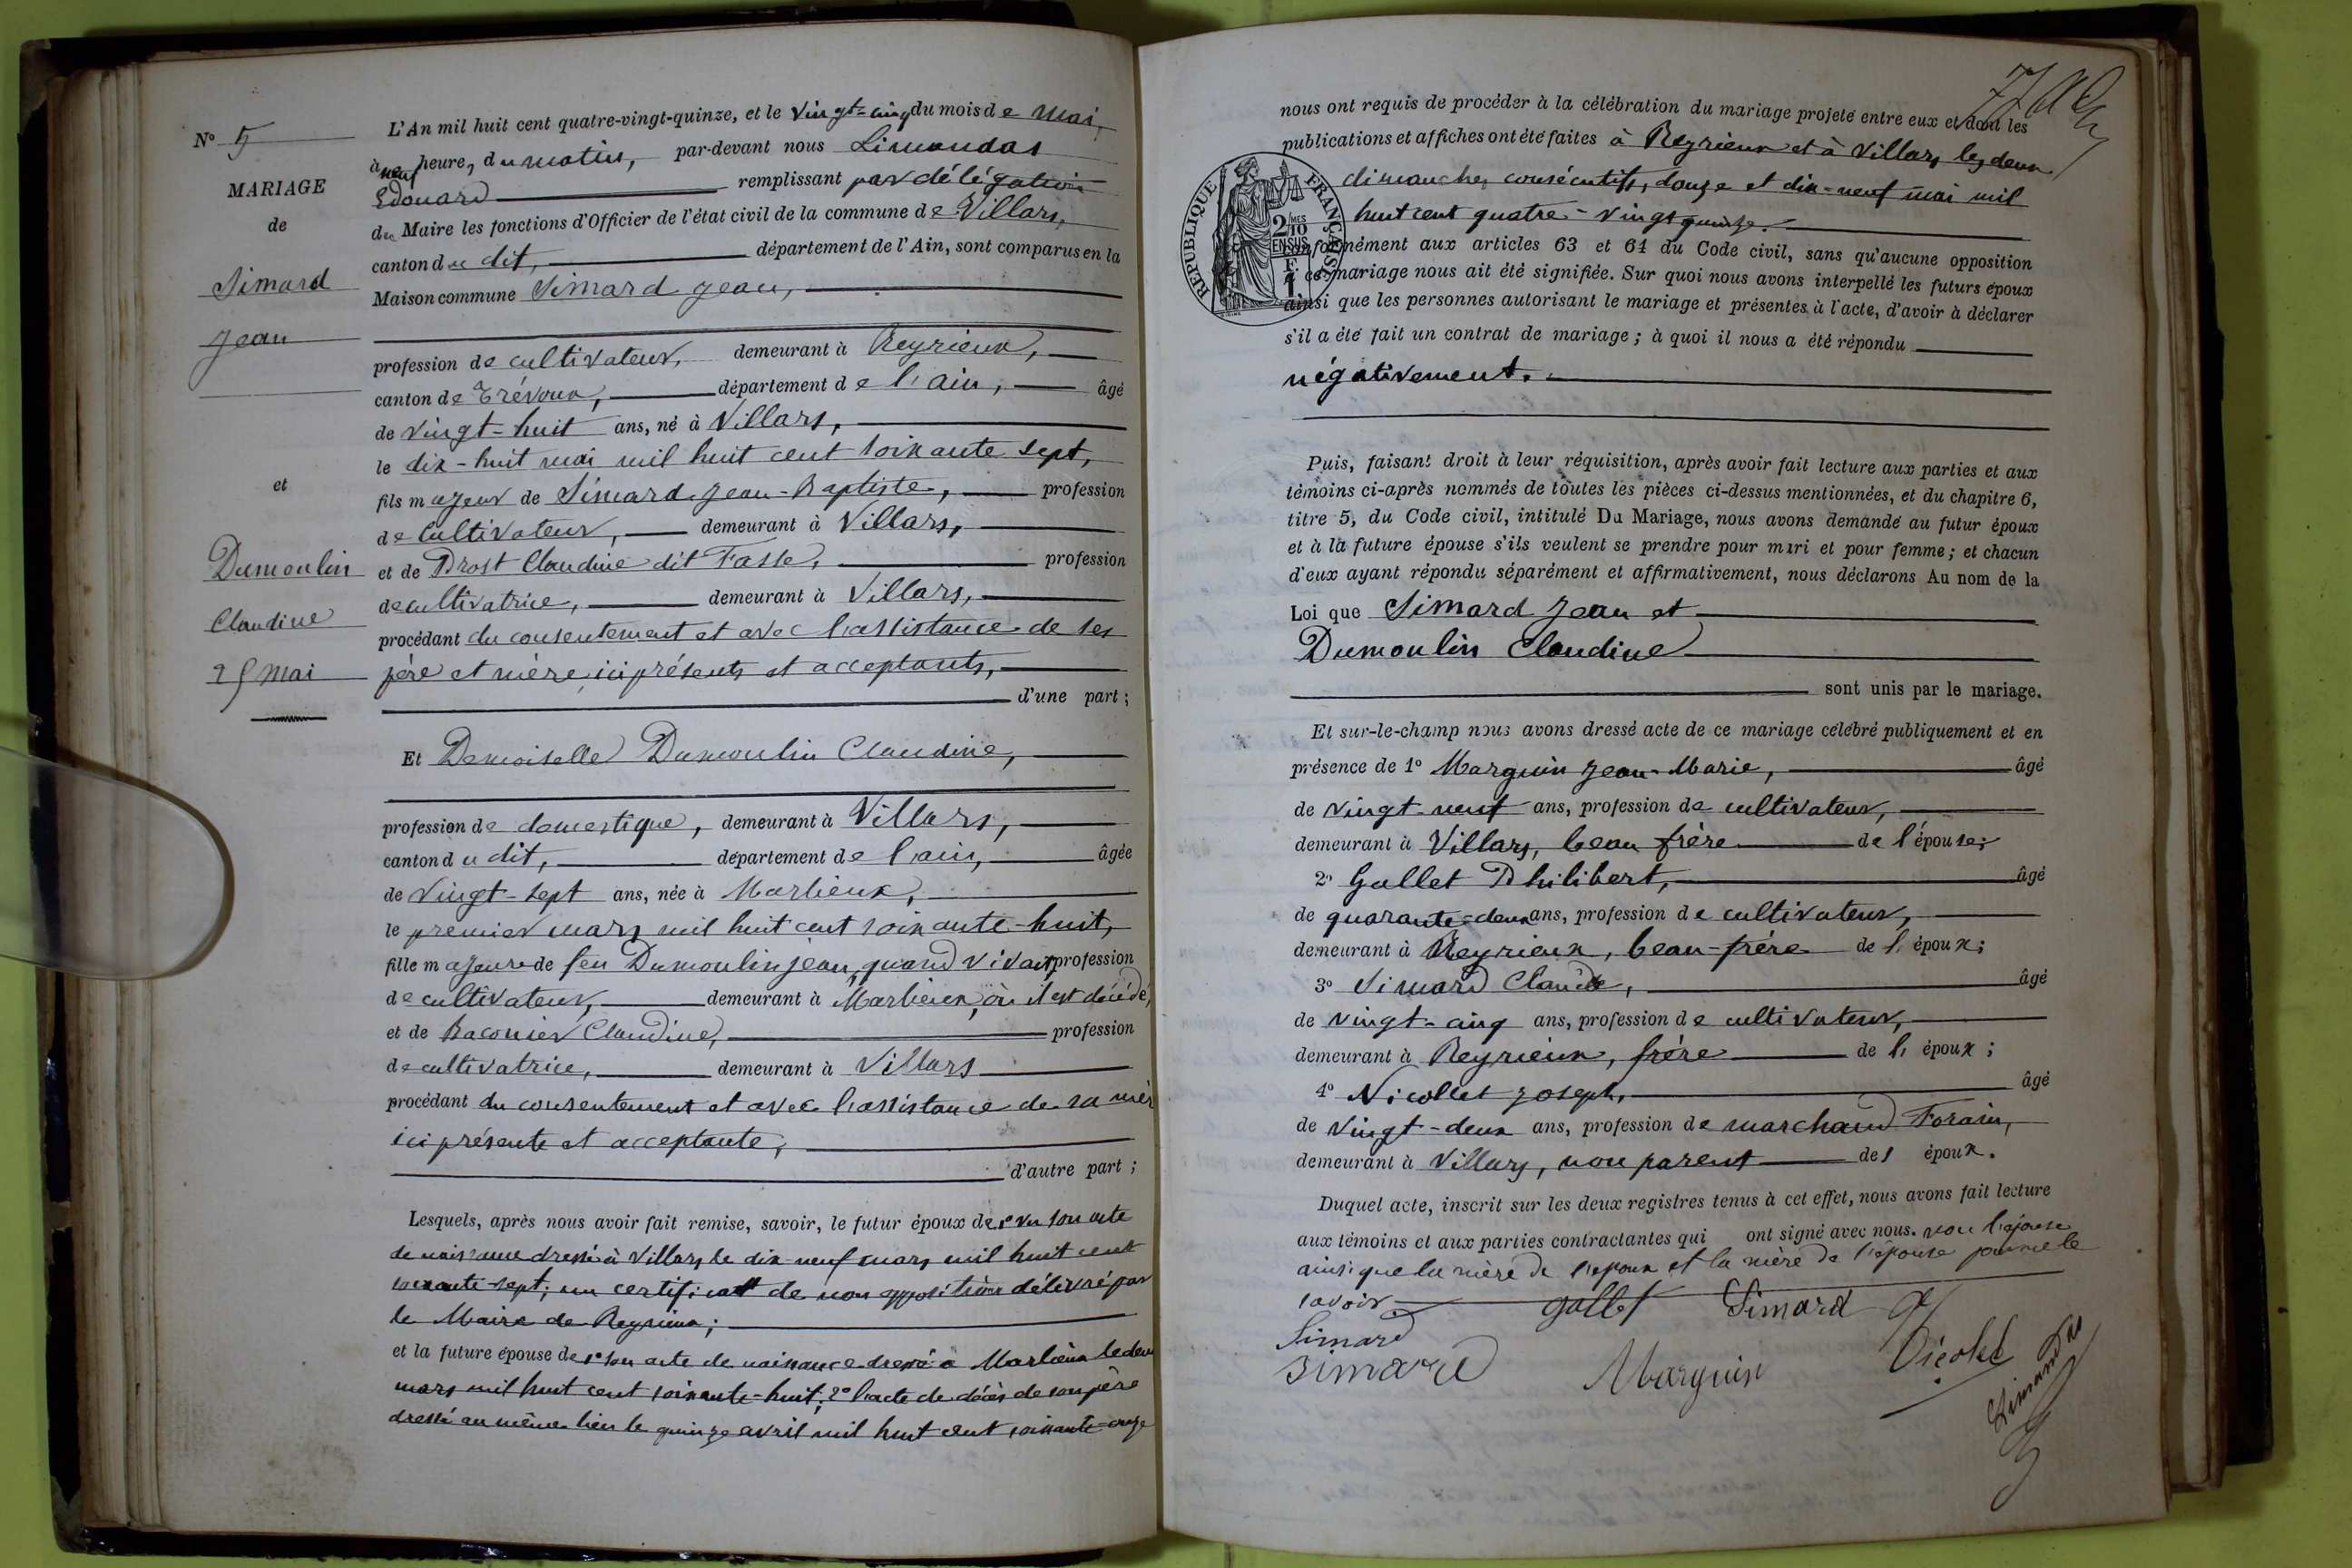 N° 5
MARIAGE
de
Simard
Jean
et
Dumoulin
Claudine
25 mai
L'An mil huit cent quatre-vingt-quinze, et le vingt-cinq du mois de mai,
à neuf heures du matin, par-devant nous Limandas
Edouard remplissant par délégation
du Maire les fonctions d'Officier de l'état civil de la commune de Villars,
canton du dit, département de l'Ain, sont comparus en la
Maison commune Simard Jean,
profession de cultivateur, demeurant à Reyrieux,
canton de Trévoux, département de l'ain, âgé
de vingt-huit ans, né à Villars,
le dix-huit mai mil huit cent soixante sept,
fils majeur de Simard Jean-Baptiste, profession
de Cultivateur, demeurant à Villars,
et de Prost Claudine dit Fasse, profession
de cultivatrice, demeurant à Villars,
procédant du consentement et avec l'assistance de ses
père et mère ici présents et acceptants,
d'une part ;
Et Demoiselle Dumoulin Claudine,
profession de domestique, demeurant à Villars,
canton du dit, département de l'ain, âgée
de vingt-sept ans, née à Marlieux,
le premier mars mil huit cent soixante-huit,
fille majeure de feu Dumoulin jean, quand vivait profession
de cultivateur, demeurant à Marlieux, où il est décédé,
et de Baconier Claudine, profession
de cultivatrice, demeurant à Villars
procédant du consentement et avec l'assistance de sa mèr
ici présente et acceptante,
d'autre part ;
Lesquels, après nous avoir fait remise, savoir, le futur époux de 1° son acte
de naissance dressé à Villars le dix-neuf mars mil huit cent
soixante-sept; un certificat de non opposition délivré par
le Maire de Reyrieux;
et la future épouse de 1° son acte de naissance dressé à Marlieux le deux
mars mil huit cent soixante-huit; 2° l'acte de décès de son père
dressé au même lieu le quinze avril mil huit cent soixante-onze
nous ont requis de procéder à la célébration du mariage projeté entre eux et dont les
publications et affiches ont été faites à Reyrieux et à Villars les deux
dimanches consécutifs, douze et dix-neuf mai mil
huit cent quatre-vingt quinze.
RÉPUBLIQUE FRANÇAISE
2/10 MES
EN SUS
F.
1
conformément aux articles 63 et 64 du Code civil, sans qu'aucune opposition
à ce mariage nous ait été signifiée. Sur quoi nous avons interpellé les futurs époux
ainsi que les personnes autorisant le mariage et présentes à l'acte, d'avoir à déclarer
s'il a été fait un contrat de mariage ; à quoi il nous a été répondu
négativement.
Puis, faisant droit à leur réquisition, après avoir fait lecture aux parties et aux
témoins ci-après nommés de toutes les pièces ci-dessus mentionnées, et du chapitre 6,
titre 5, du Code civil, intitulé Du Mariage, nous avons demandé au futur époux
et à la future épouse s'ils veulent se prendre pour mari et pour femme ; et chacun
d'eux ayant répondu séparément et affirmativement, nous déclarons Au nom de la
Loi que Simard Jean et
Dumoulin Claudine
sont unis par le mariage.
Et sur-le-champ nous avons dressé acte de ce mariage célébré publiquement et en
présence de 1° Marguin Jean-Marie, âgé
de vingt-neuf ans, profession de cultivateur,
demeurant à Villars, beau frère de l'épouse;
2° Gallet Philibert, âgé
de quarante-deux ans, profession de cultivateur,
demeurant à Reyrieux, beau-frère de l'époux;
3° Simard Claude, âgé
de vingt-cinq ans, profession de cultivateur,
demeurant à Reyrieux, frère de l'époux;
4° Nicollet Joseph, âgé
de vingt-deux ans, profession de marchand Forain,
demeurant à Villars, non parent des époux.
Duquel acte, inscrit sur les deux registres tenus à cet effet, nous avons fait lecture
aux témoins et aux parties contractantes qui ont signé avec nous. non l'épouse
ainsi que la mère de l'époux et la mère de l'épouse pour ne le
savoir.
gallet Simard
Simard
Simard Marguin Nicolet
Limandas